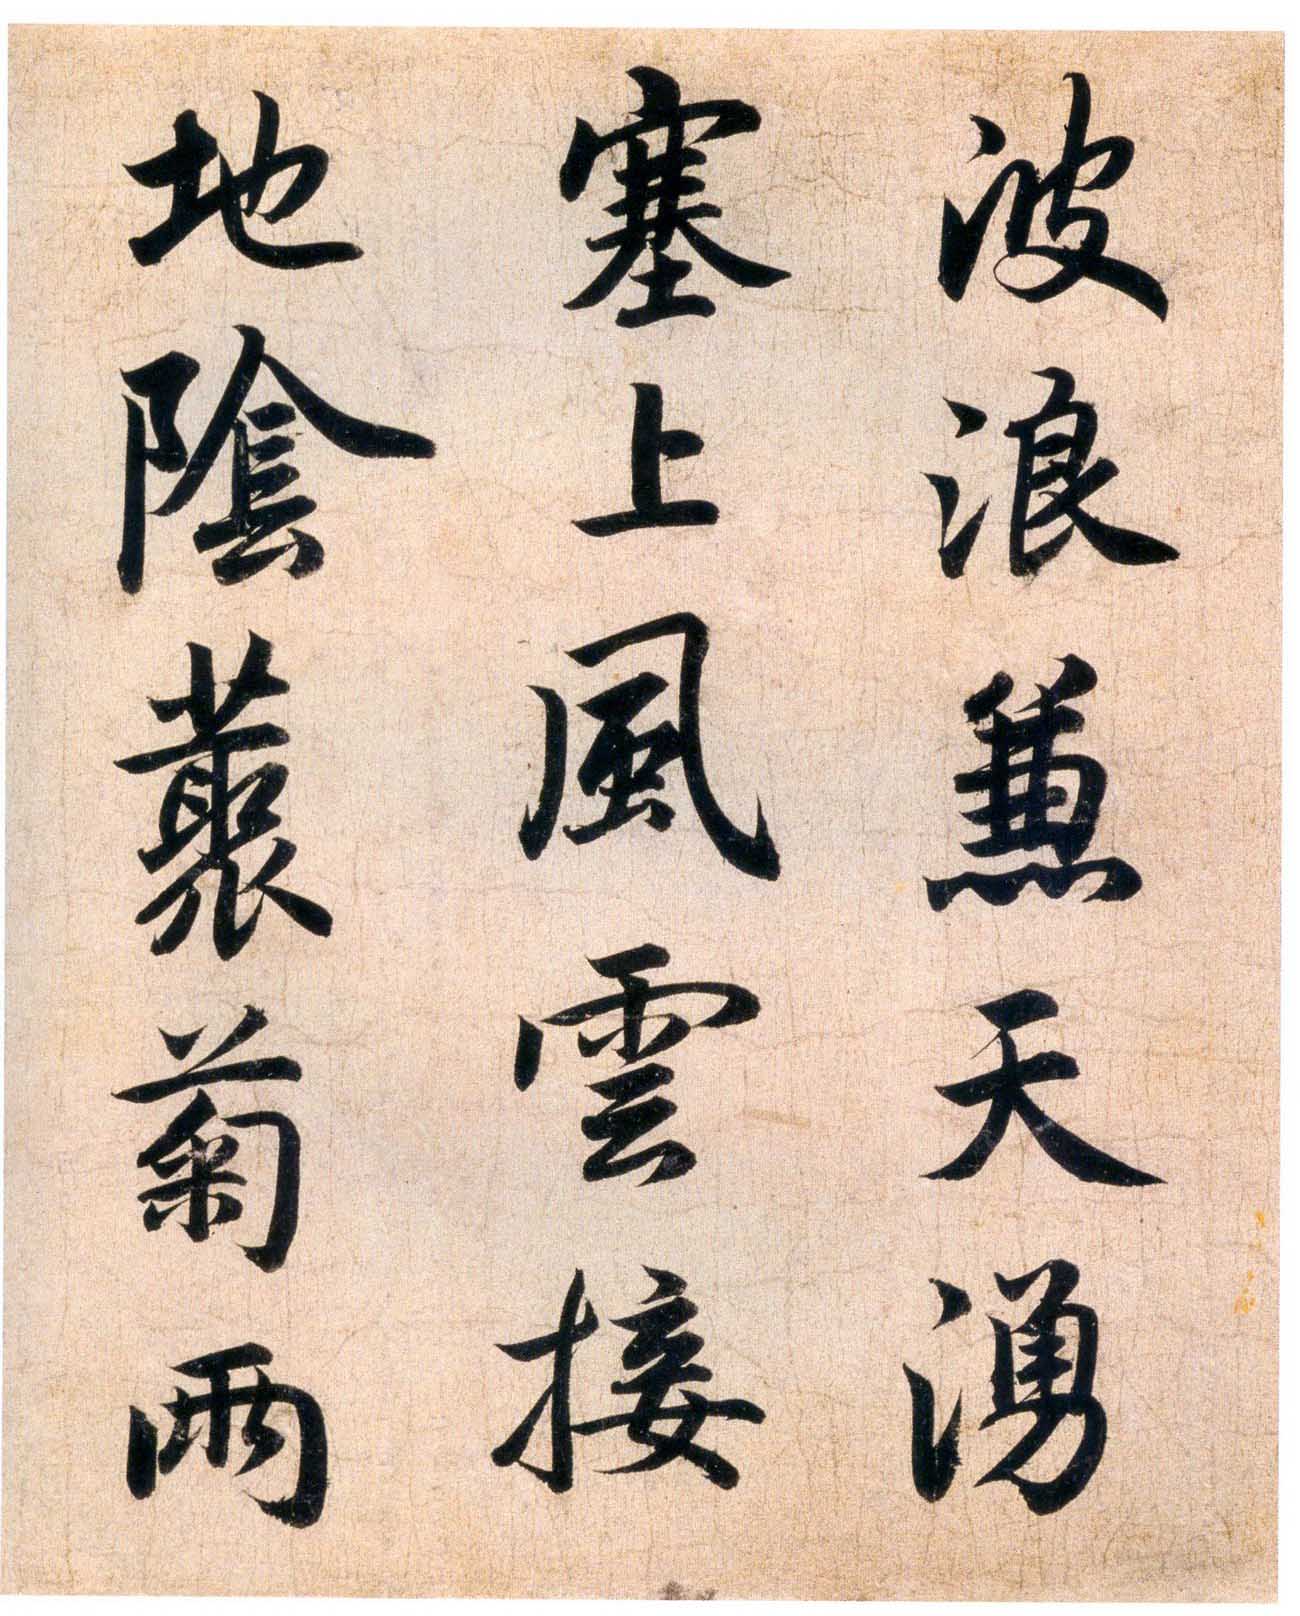 波浪兼天湧
塞上風雲接
地隂叢菊兩